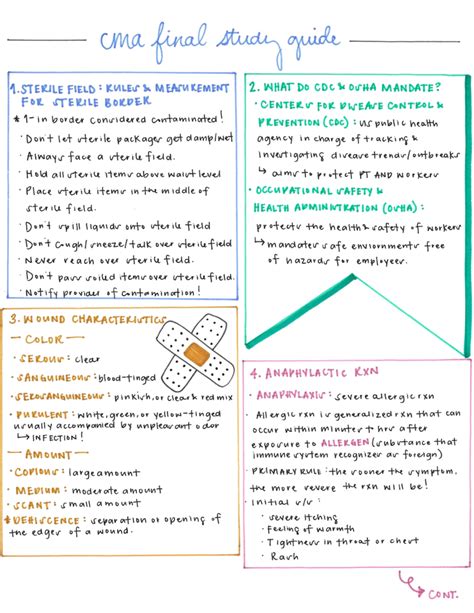 cma final study guide
1. STERILE FIELD: RULES & MEASUREMENT
FOR STERILE BORDER
* 1-in border considered contaminated!
· Don't let sterile packages get damp/wet
· Always face a sterile field.
· Hold all sterile items above waist level
· Place sterile items in the middle of
sterile field.
· Don't spill liquids onto sterile field
· Don't cough/sneeze/talk over sterile field
· Never reach over sterile field.
· Don't pass soiled items over sterile field.
· Notify provider of contamination!
2. WHAT DO CDC & OSHA MANDATE?
· CENTERS FOR DISEASE CONTROL &
PREVENTION (CDC): US public health
agency in charge of tracking &
investigating disease trends/outbreaks
↳ aims to protect PT AND workers
· OCCUPATIONAL SAFETY &
HEALTH ADMINISTRATION (OSHA):
protects the health & safety of workers
↳ mandates safe enviornments free
of hazards for employees.
3. WOUND CHARACTERISTICS
— COLOR —
· SEROUS: clear
· SANGUINEOUS: blood-tinged
· SEROSANGUINEOUS: pinkish, or clear & red mix
· PURULENT: white, green, or yellow-tinged
usually accompanied by unpleasant odor
↳ INFECTION!
— AMOUNT —
· COPIOUS: large amount
· MEDIUM: moderate amount
· SCANT: small amount
* DEHISCENCE: separation or opening of
the edges of a wound.
4. ANAPHYLACTIC RXN
· ANAPHYLAXIS: severe allergic rxn
· Allergic rxn is generalized rxn that can
occur within minutes + hrs after
exposure to ALLERGEN (substance that
immune system recognizes as foreign)
· PRIMARY RULE: the sooner the symptom,
the more severe the rxn will be!
· Initial s/s:
· severe itching
· Feeling of warmth
· Tightness in throat or chest
· Rash
↳ CONT.